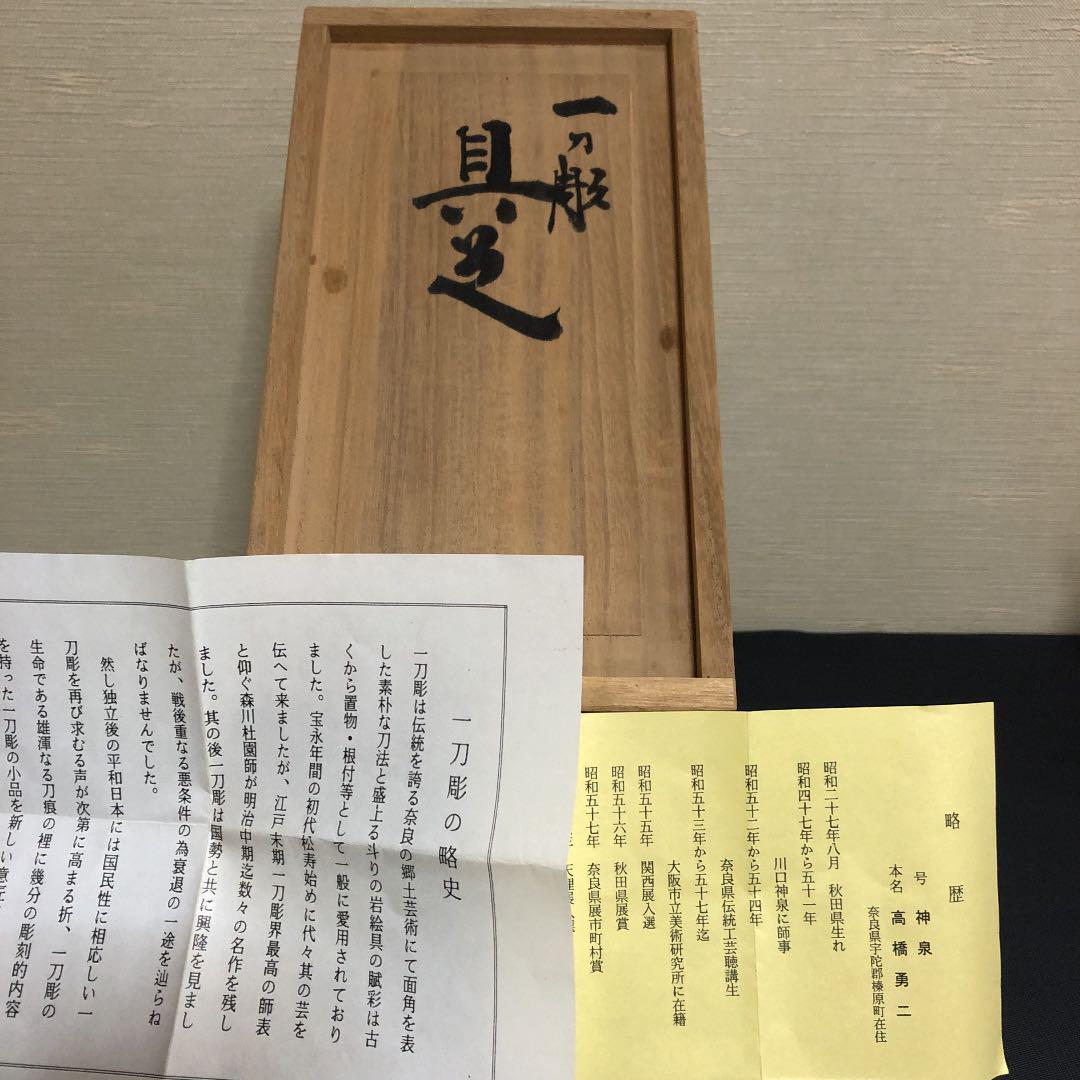 一刀彫
具足
一刀彫の略史
一刀彫は伝統を誇る奈良の郷土芸術にて面角を表
した素朴な刀法と盛上る斗りの岩絵具の賦彩は古
くから置物・根付等として一般に愛用されており
ました。宝永年間の初代松寿始めに代々其の芸を
伝へて来ましたが、江戸末期一刀彫界最高の師表
と仰ぐ森川杜園師が明治中期迄数々の名作を残し
ました。其の後一刀彫は国勢と共に興隆を見まし
たが、戦後重なる悪条件の為衰退の一途を辿らね
ばなりませんでした。
然し独立後の平和日本には国民性に相応しい一
刀彫を再び求むる声が次第に高まる折、一刀彫の
生命である雄渾なる刀痕の裡に幾分の彫刻的内容
を持った一刀彫の小品を新しい意匠
略歴
号 神泉
本名 高橋勇二
奈良県宇陀郡榛原町在住
昭和二十七年八月 秋田県生れ
昭和四十七年から五十一年
川口神泉に師事
昭和五十二年から五十四年
奈良県伝統工芸聴講生
昭和五十三年から五十七年迄
大阪市立美術研究所に在籍
昭和五十五年 関西展入選
昭和五十六年 秋田県展賞
昭和五十七年 奈良県展市町村賞